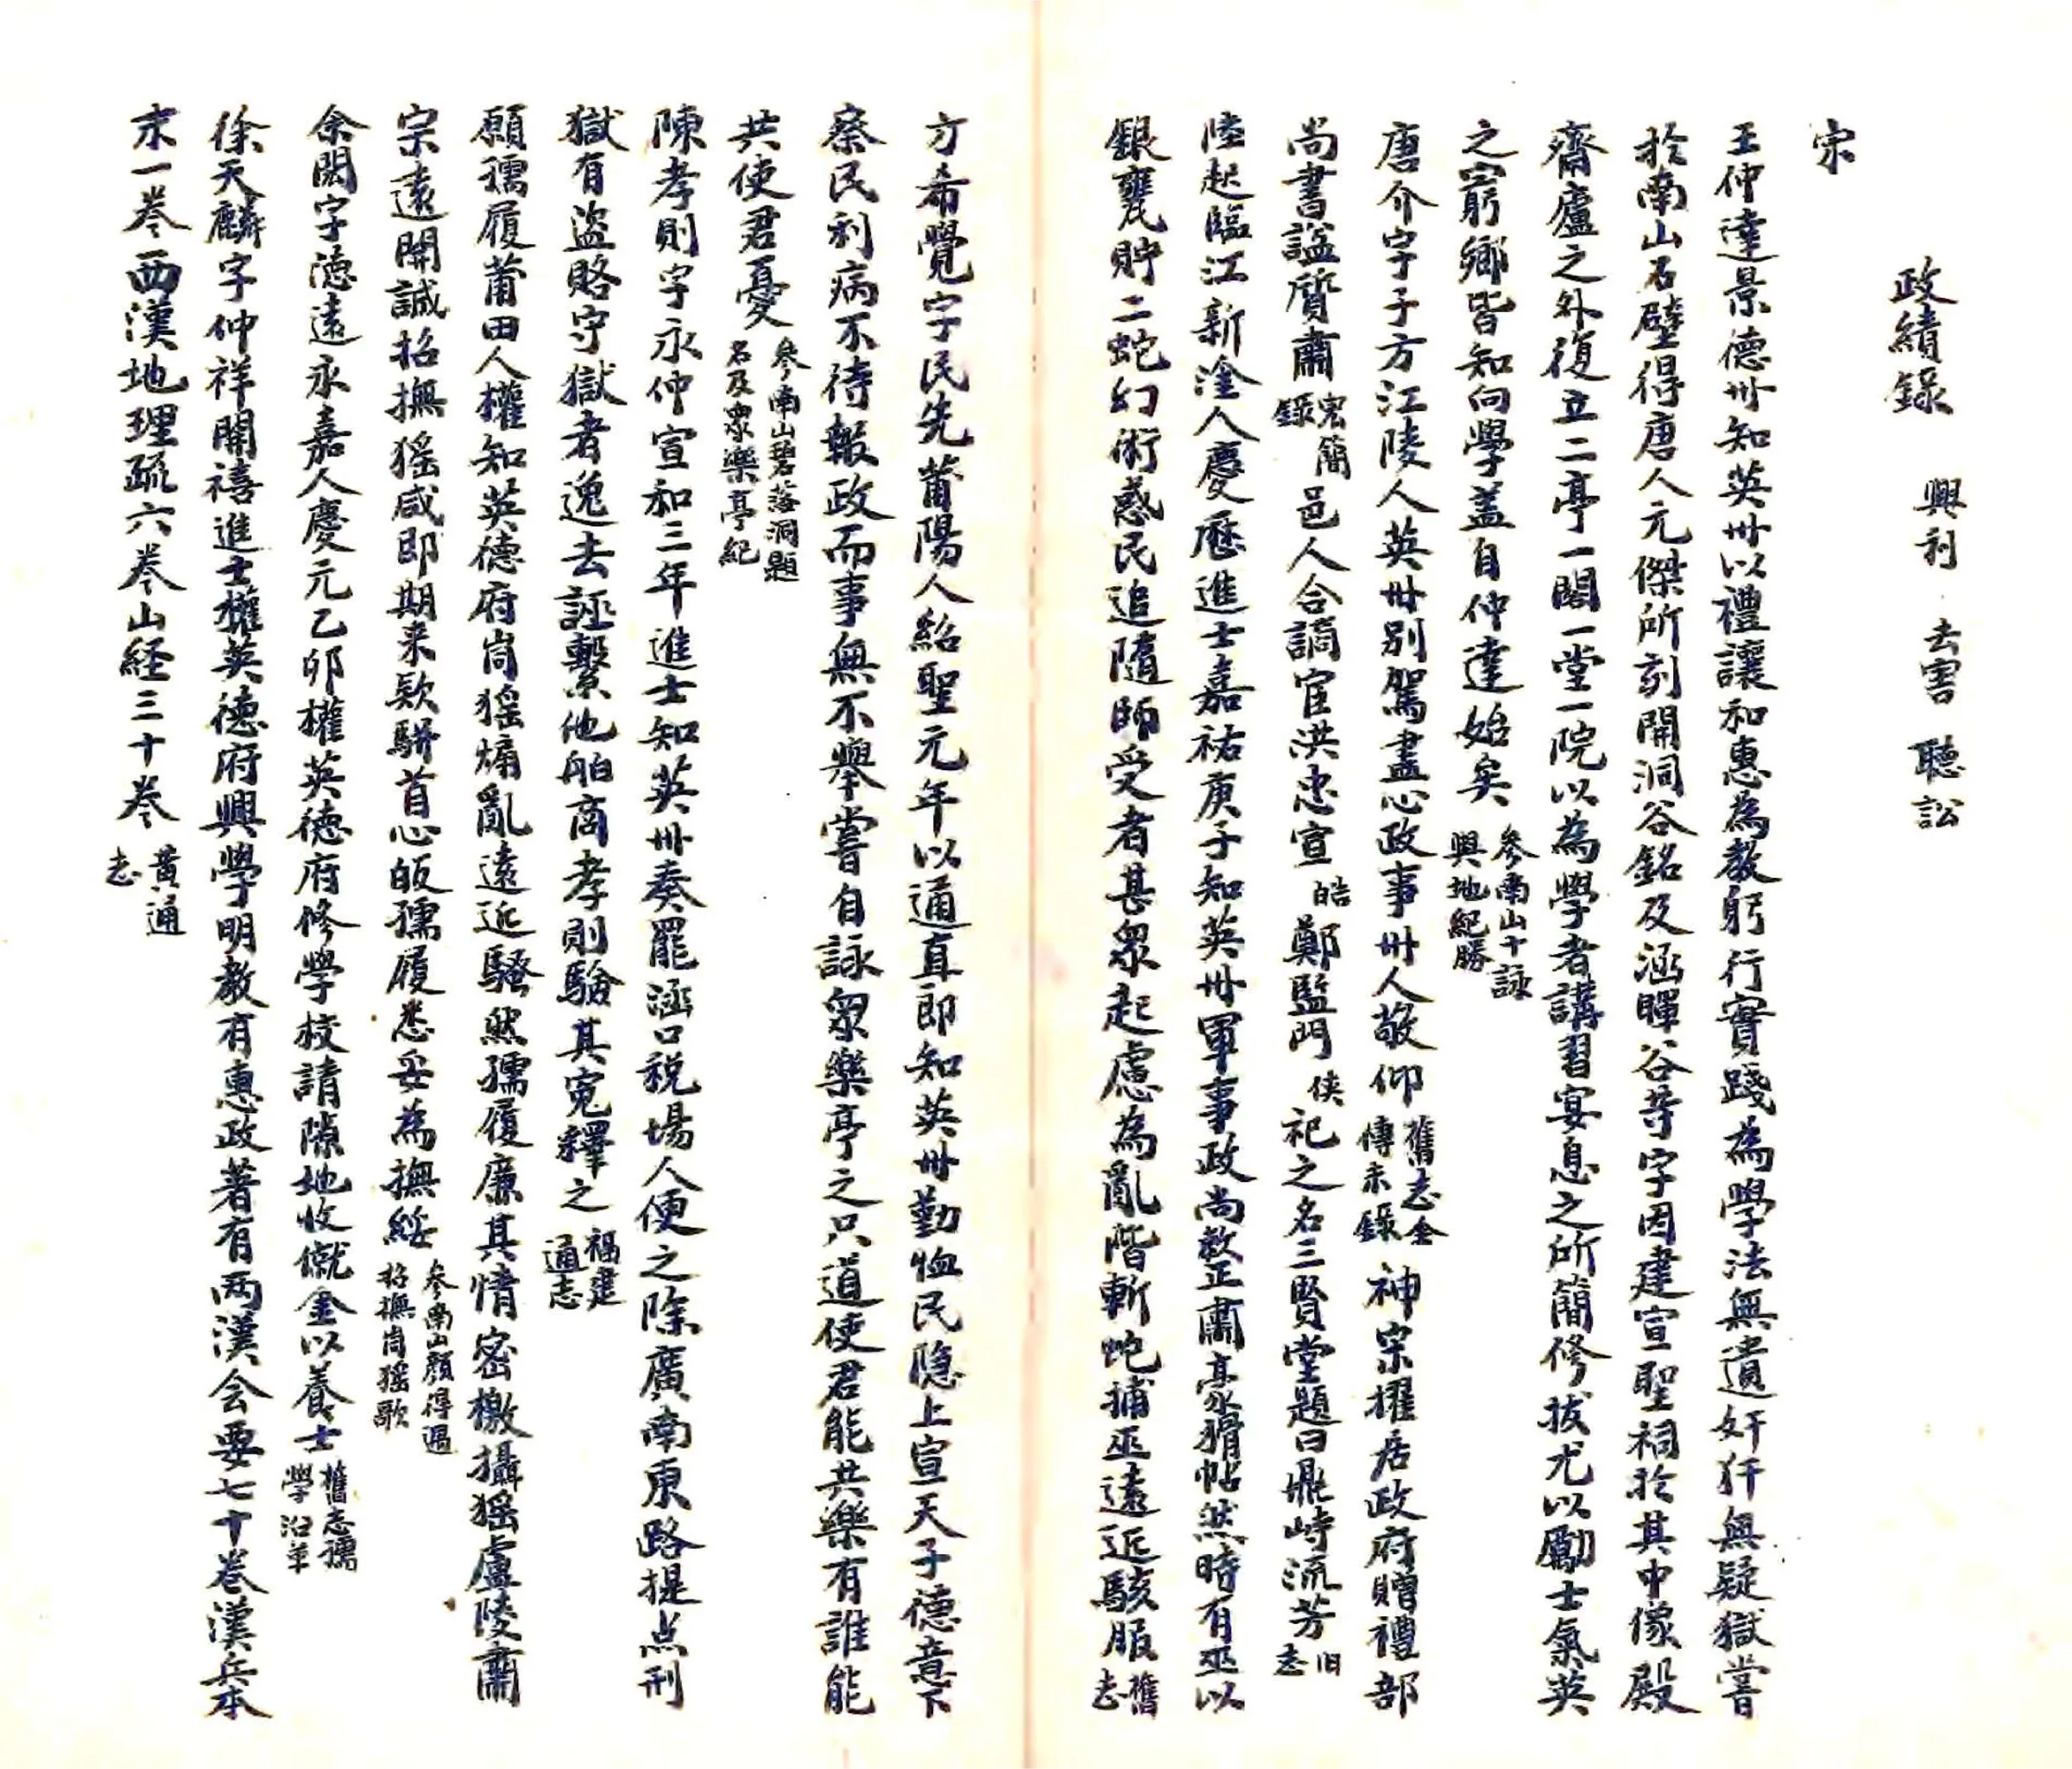 政績錄 興利 去害 聽訟
宋
王仲達景德卅知英卅以禮讓和惠為教躬行實踐為學法無遺奸犴無疑獄嘗
於南山石壁得唐人元傑所刻開洞谷銘及涵暉谷等字因建宣聖祠於其中像殿
齋廬之外復立二亭一閣一堂一院以為學者講習宴息之所簡修拔尤以勵士氣英
之窮鄉皆知向學盖自仲達始矣 參南山十詠輿地紀勝
唐介字子方江陵人英卅別駕盡心政事卅人敬仰 舊志金傳未錄 神宗擢居政府贈禮部
尚書謚質肅 宏簡錄 邑人合謫宦洪忠宣 皓 鄭監門 俠 祀之名三賢堂題曰鼎峙流芳 旧志
陸起臨江新淦人慶歷進士嘉祐庚子知英卅軍事政尚教正肅豪猾帖然時有巫以
銀甕貯二蛇幻術惑民追隨師受者甚眾起慮為亂階斬蛇捕巫遠近駭服 舊志
方希覺字民先莆陽人紹聖元年以通直郎知英卅勤恤民隐上宣天子德意下
察民利病不待報政而事無不舉嘗自詠眾樂亭之只道使君能共樂有誰能
共使君憂 參南山碧落洞題名及眾樂亭紀
陳孝則字永仲宣和三年進士知英卅奏罷涵口税場人便之除廣南東路提点刑
獄有盜賂守獄者逸去誣繫他舶商孝則驗其寃釋之 福建通志
願孺履莆田人權知英德府峝猺煽亂遠近騷然孺履廉其情密檄攝猺盧陵蕭
宗遠開誠招撫猺咸即期来欵駢首心皈孺履悉妥為撫綏 參南山顏得遇招撫峝猺歌
余閎字德遠永嘉人慶元乙卯權英德府修學校請隙地收僦金以養士 舊志孺學沿革
徐天麟字仲祥開禧進士權英德府興學明教有惠政著有两漢会要七十卷漢兵本
末一卷西漢地理疏六卷山経三十卷 黃通志